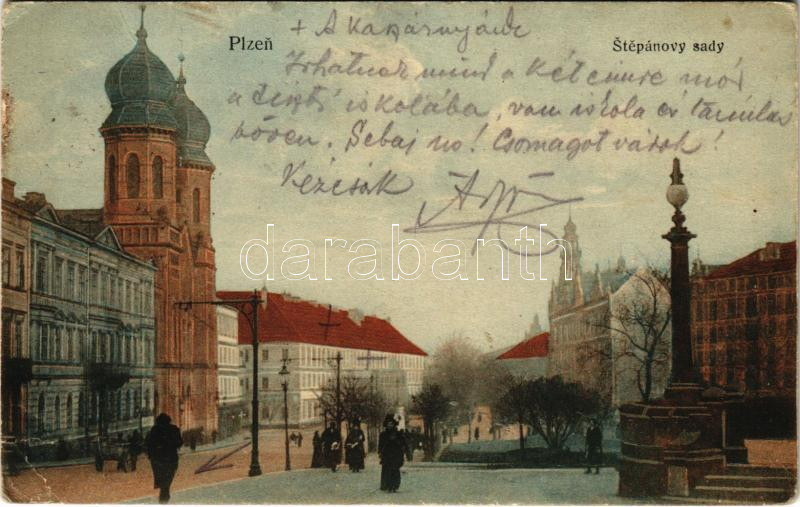 Plzeň
Štěpánovy sady
+ A kaszárnyánk
Irhatnak mind a két címre már
a iskolába, van iskola és tanulás
bőven. Sebaj no! Csomagot várok!
Kézcsók
darabanth